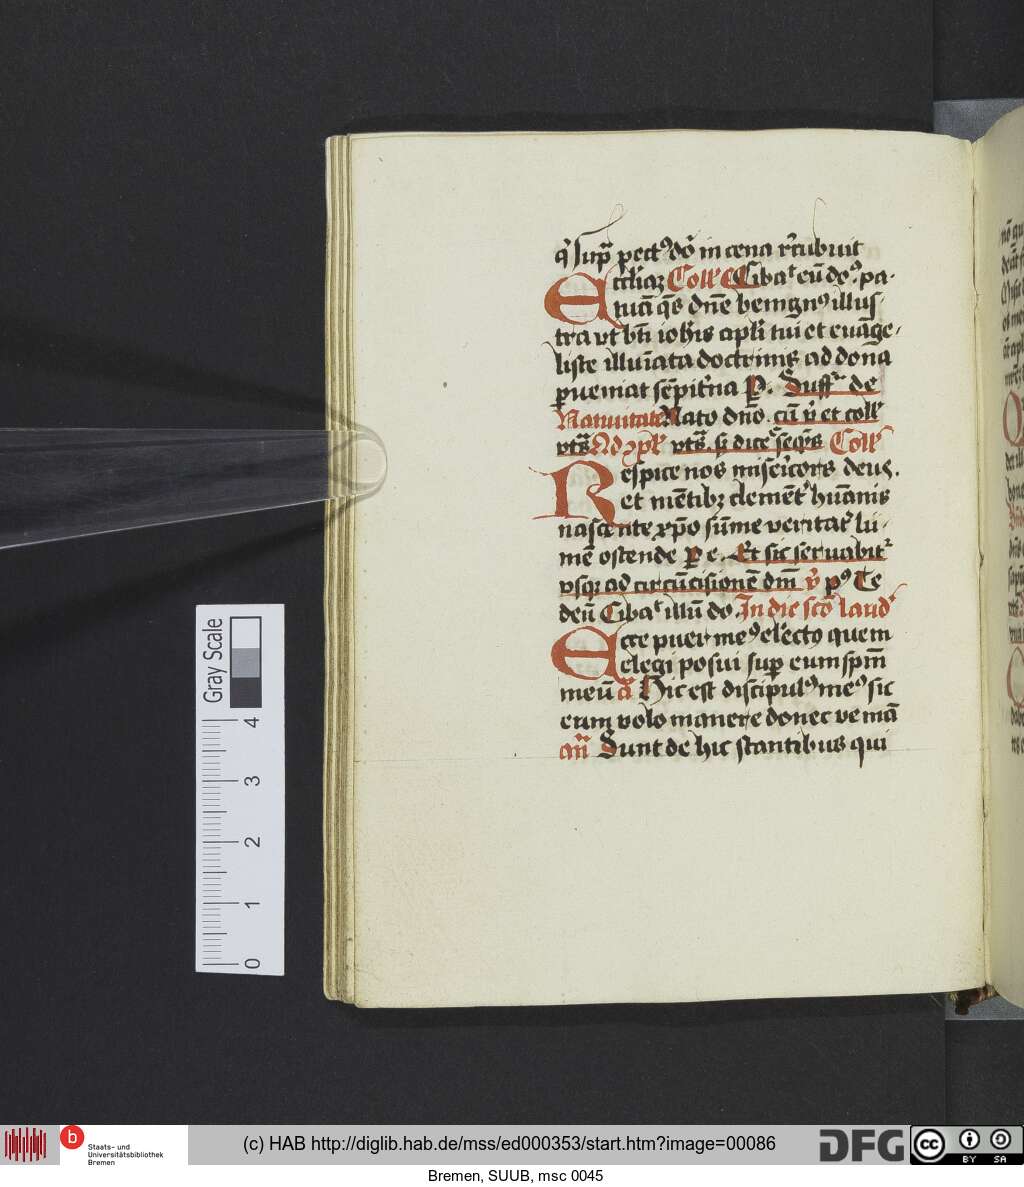 qͥ sup̄ pectꝰ dōi in cena recubuit
Eccliaꝫ Coll͛ Cibat͛ eū doꝰ. pa-
tuā q̄s dn̄e benignꝰ illus
tra vt bt̄i ioh̄is apl̄i tui et euāge-
liste illuīata doctrinis ad dona
ꝑueniat sēpit͛na P. Suff͛ de
Natiuitate Nato dn̄o. cū v̄ et coll͛
vts̄ Ad xpl̄ vts̄. si dice͛ seqͥs Coll͛
Respice nos misericors deus.
et mētibꝫ clement͛ hūanis
nascente xp̄o sūme veritat͛ lu-
mē ostende P e. Et sic seruabit͛
vsqꝫ ad circūcisionē dn̄i v̄ pꝰ Te
deū Cibat͛ illū do. In die scō laud͛
Ecce puer meꝰ electo quem
elegi posui sup̄ eum spm̄
meū an̄ Hic est discipulꝰ meꝰ sic
eum volo manere donec veniā
an̄ Sunt de hic stantibus qui
Gray Scale
4
3
2
1
0
b
Staats- und
Universitätsbibliothek
Bremen
(c) HAB http://diglib.hab.de/mss/ed000353/start.htm?image=00086
DFG
cc
BY SA
Bremen, SUUB, msc 0045